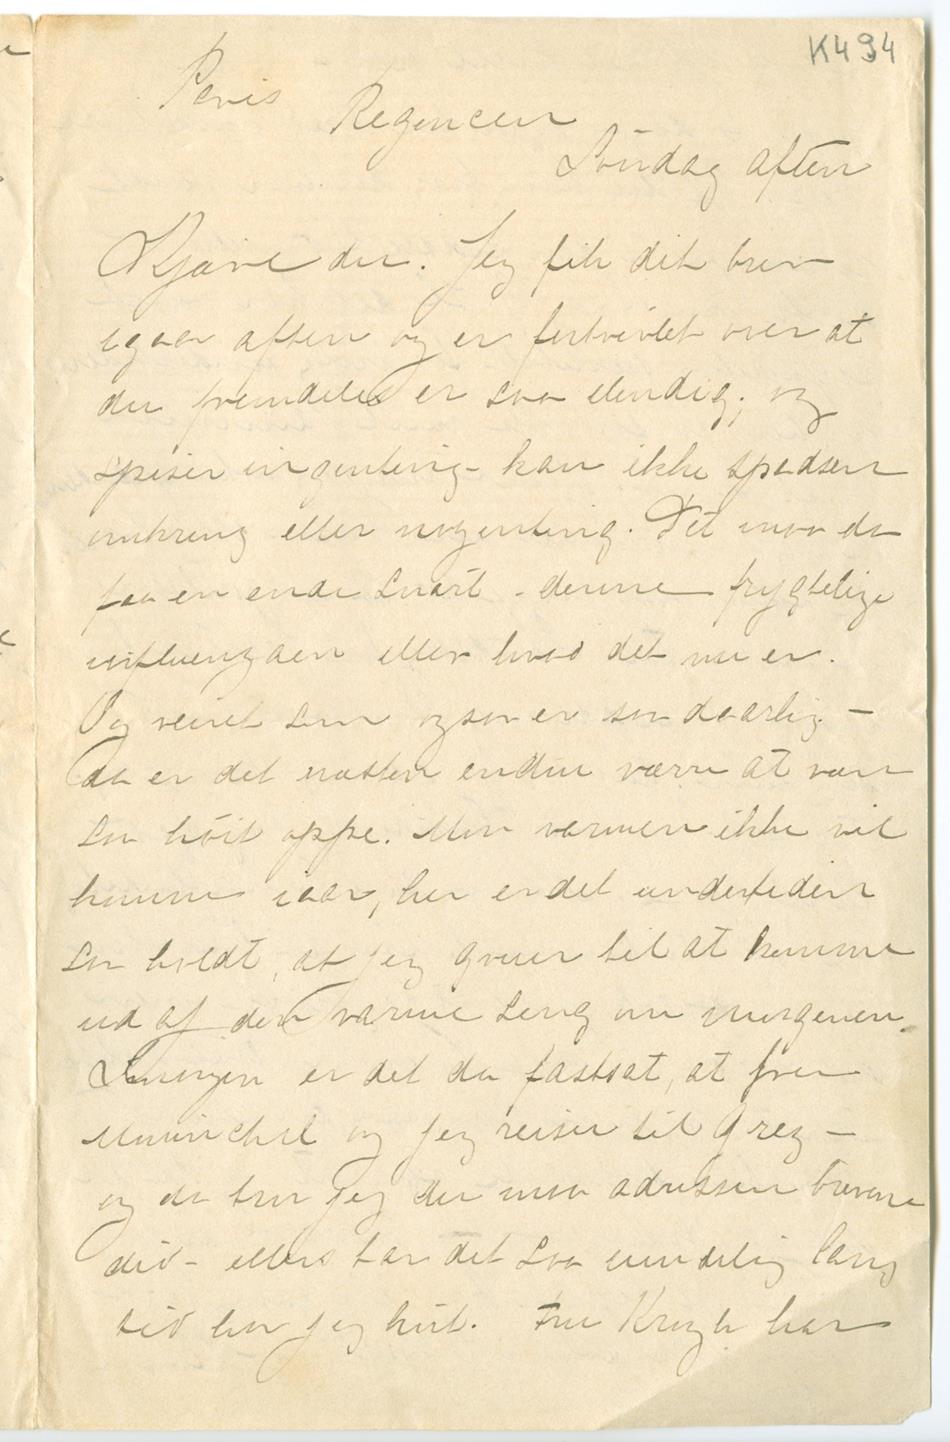 K494
Paris Regencen
Søndag aften
Kjære du. Jeg fik dit brev
igaar aften og er fortvivlet over at
du fremdeles er saa elendig; og
spiser ingenting – kan ikke spadsere
omkring eller nogenting. Det maa da
faa en ende snart – denne frygtelige
influenzaen eller hvad det nu er.
Og veiret som ogsaa er saa daarlig –
da er det næsten endnu værre at være
saa høit oppe. Mon varmen ikke vil
komme iaar, her er det undertiden
saa koldt, at jeg gruer til at komme
ud af den varme seng om morgenen.
Imorgen er det da fastsat, at fru
og jeg reiser til Grez –
og da tror jeg du maa adressere brevene
did – ellers tar det saa uendelig lang
tid har jeg hørt. Fru Krogh har